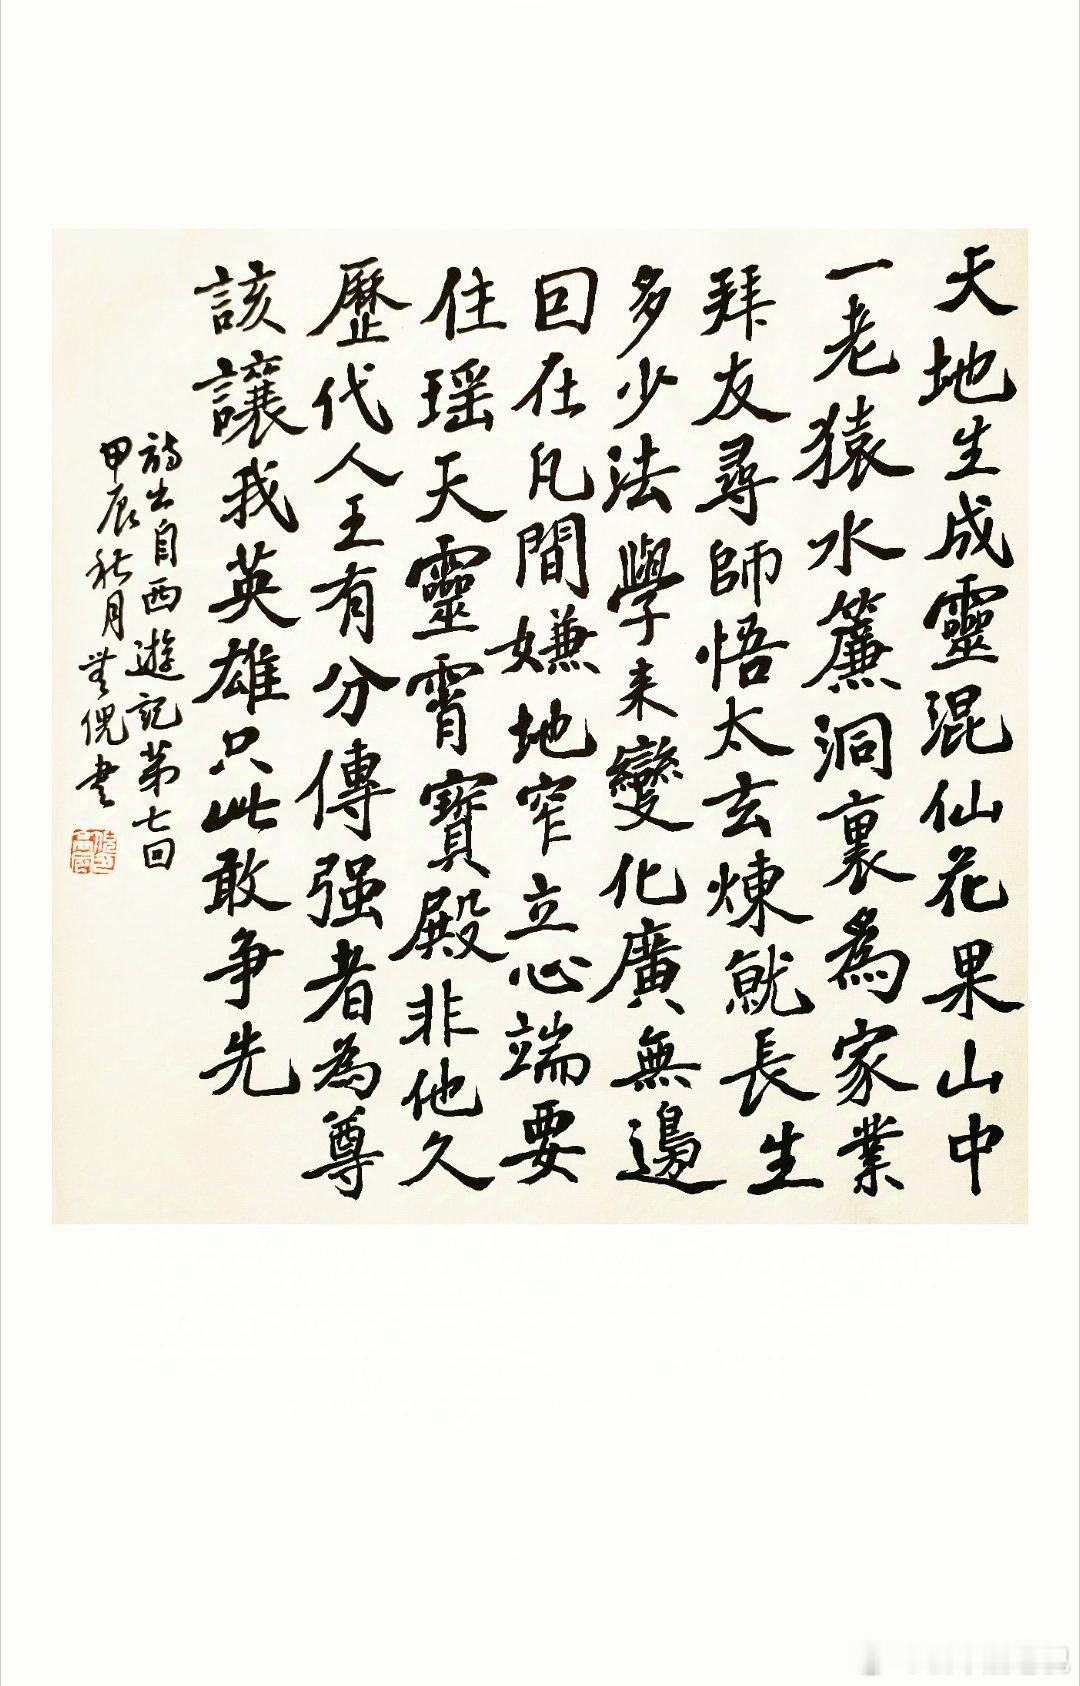 天地生成靈混仙花果山中
一老猿水簾洞裏為家業
拜友尋師悟太玄煉就長生
多少法學来變化廣無邊
因在凡間嫌地窄立心端要
住瑶天靈霄寶殿非他久
歷代人王有分傳强者為尊
該讓我英雄只此敢争先
詩出自西遊記第七回
甲辰秋月 倪書